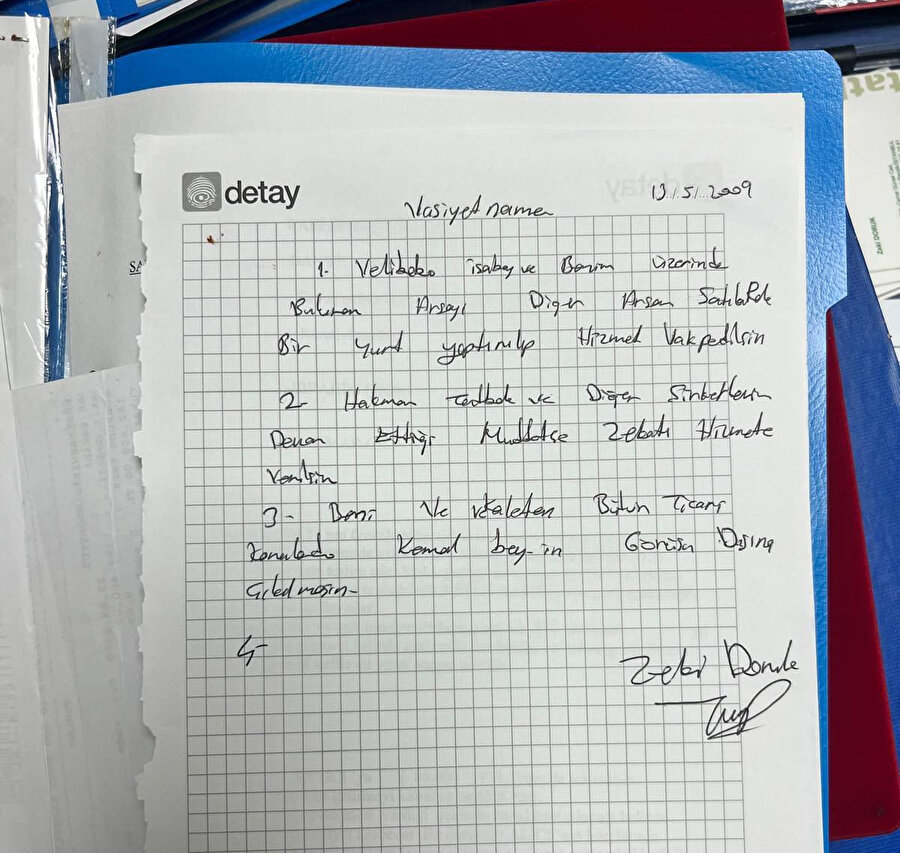 detay
13.5.2009
Vasiyet name
1. Velibaba isabey ve Benim üzerinde
Bulunan Arsayı Diğer Arsam Satılarak
Bir Yurt yaptırılıp Hizmet Vakfedilsin
2- Hakman ve Diğer Şirketlerin
Devam Ettiği Müddetçe Zekatı Hizmete
Verilsin
3- Dini Ve Bütün Ticari
Konularda Kemal bey-in Görüşü Dışına
Çıkılmasın-
4-
Zeki Doruk
Zeki DORUK